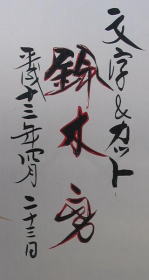 文字&カット
鈴木
平成十三年四月二十三日